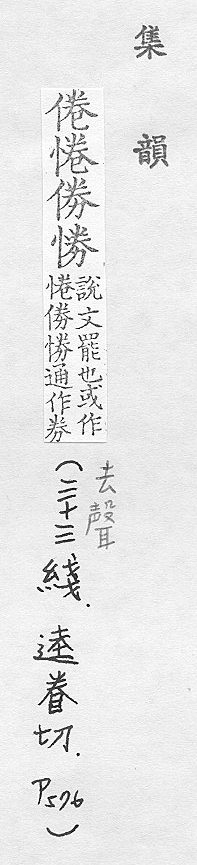 集韻
倦惓
說文罷也或作
惓通作劵
去聲
(三十三綫.逵眷切.P576)